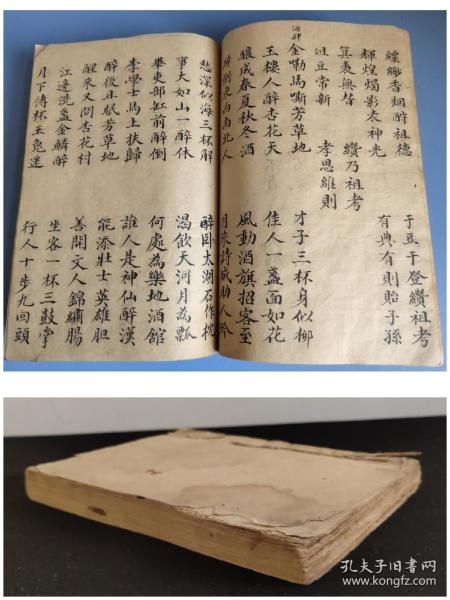 縹緲香烟醉祖德　于豆于登纘祖考
輝煌燭影表神光　有典有則貽子孫
箕裘無替　纘乃祖考
俎豆常新　孝思維則
酒肆
金勒馬嘶芳草地　才子三杯身似柳
玉樓人醉杏花天　佳人一盞面如花
釀成春夏秋冬酒　風動酒旗招客至
醉倒東西南北人　月來詩助人吟
愁深似海三杯解　醉卧太湖石作枕
事大如山一醉休　渴飲天河月為瓢
畢吏部缸前醉倒　何處為樂地酒館
李學士馬上扶歸　誰人是神仙醉漢
醉後且眠芳草地　能添壯士英雄胆
醒來又問杏花村　善開文人錦繡腸
江邊洗盞金鱗醉　坐客一杯三鼓掌
月下傳杯玉兔迷　行人十步九回頭
孔夫子旧书网
www.kongfz.com